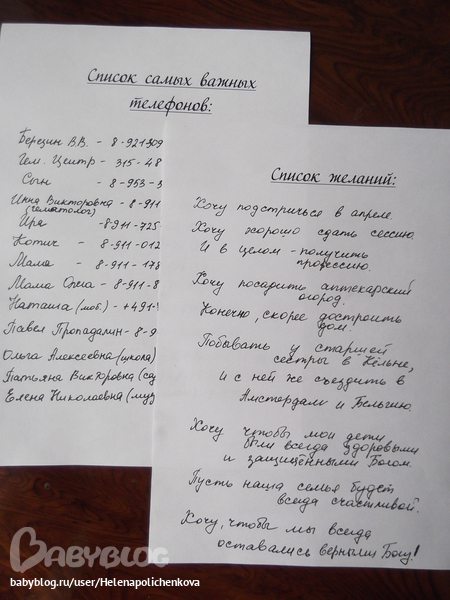 Список самых важных
телефонов:
Березин В.В. - 8-921309
Гем. Центр - 315-48
Сын - 8-953-3
Инна Викторовна - 8-911
(гематолог)
Ира - 8911-725
Котик - 8-911-012
Мама - 8-911-178
Мама Оля - 8-911-8
Наташа (моб.) - +491-
Павел Пропадалин - 8-9
Ольга Алексеевна (школа)
Татьяна Викторовна (са
Елена Николаевна (муз
Список желаний:
Хочу подстричься в апреле.
Хочу хорошо сдать сессию.
И в целом - получить
профессию.
Хочу посадить аптекарский
огород.
Конечно, скорее достроить
дом.
Побывать у старшей
сестры в Кёльне,
и с ней же съездить в
Амстердам и Бельгию.
Хочу чтобы мои дети
были всегда здоровыми
и защищёнными Богом.
Пусть наша семья будет
всегда счастливой.
Хочу, чтобы мы всегда
оставались верными Богу!
BABYBLOG
babyblog.ru/user/Helenapolichenkova